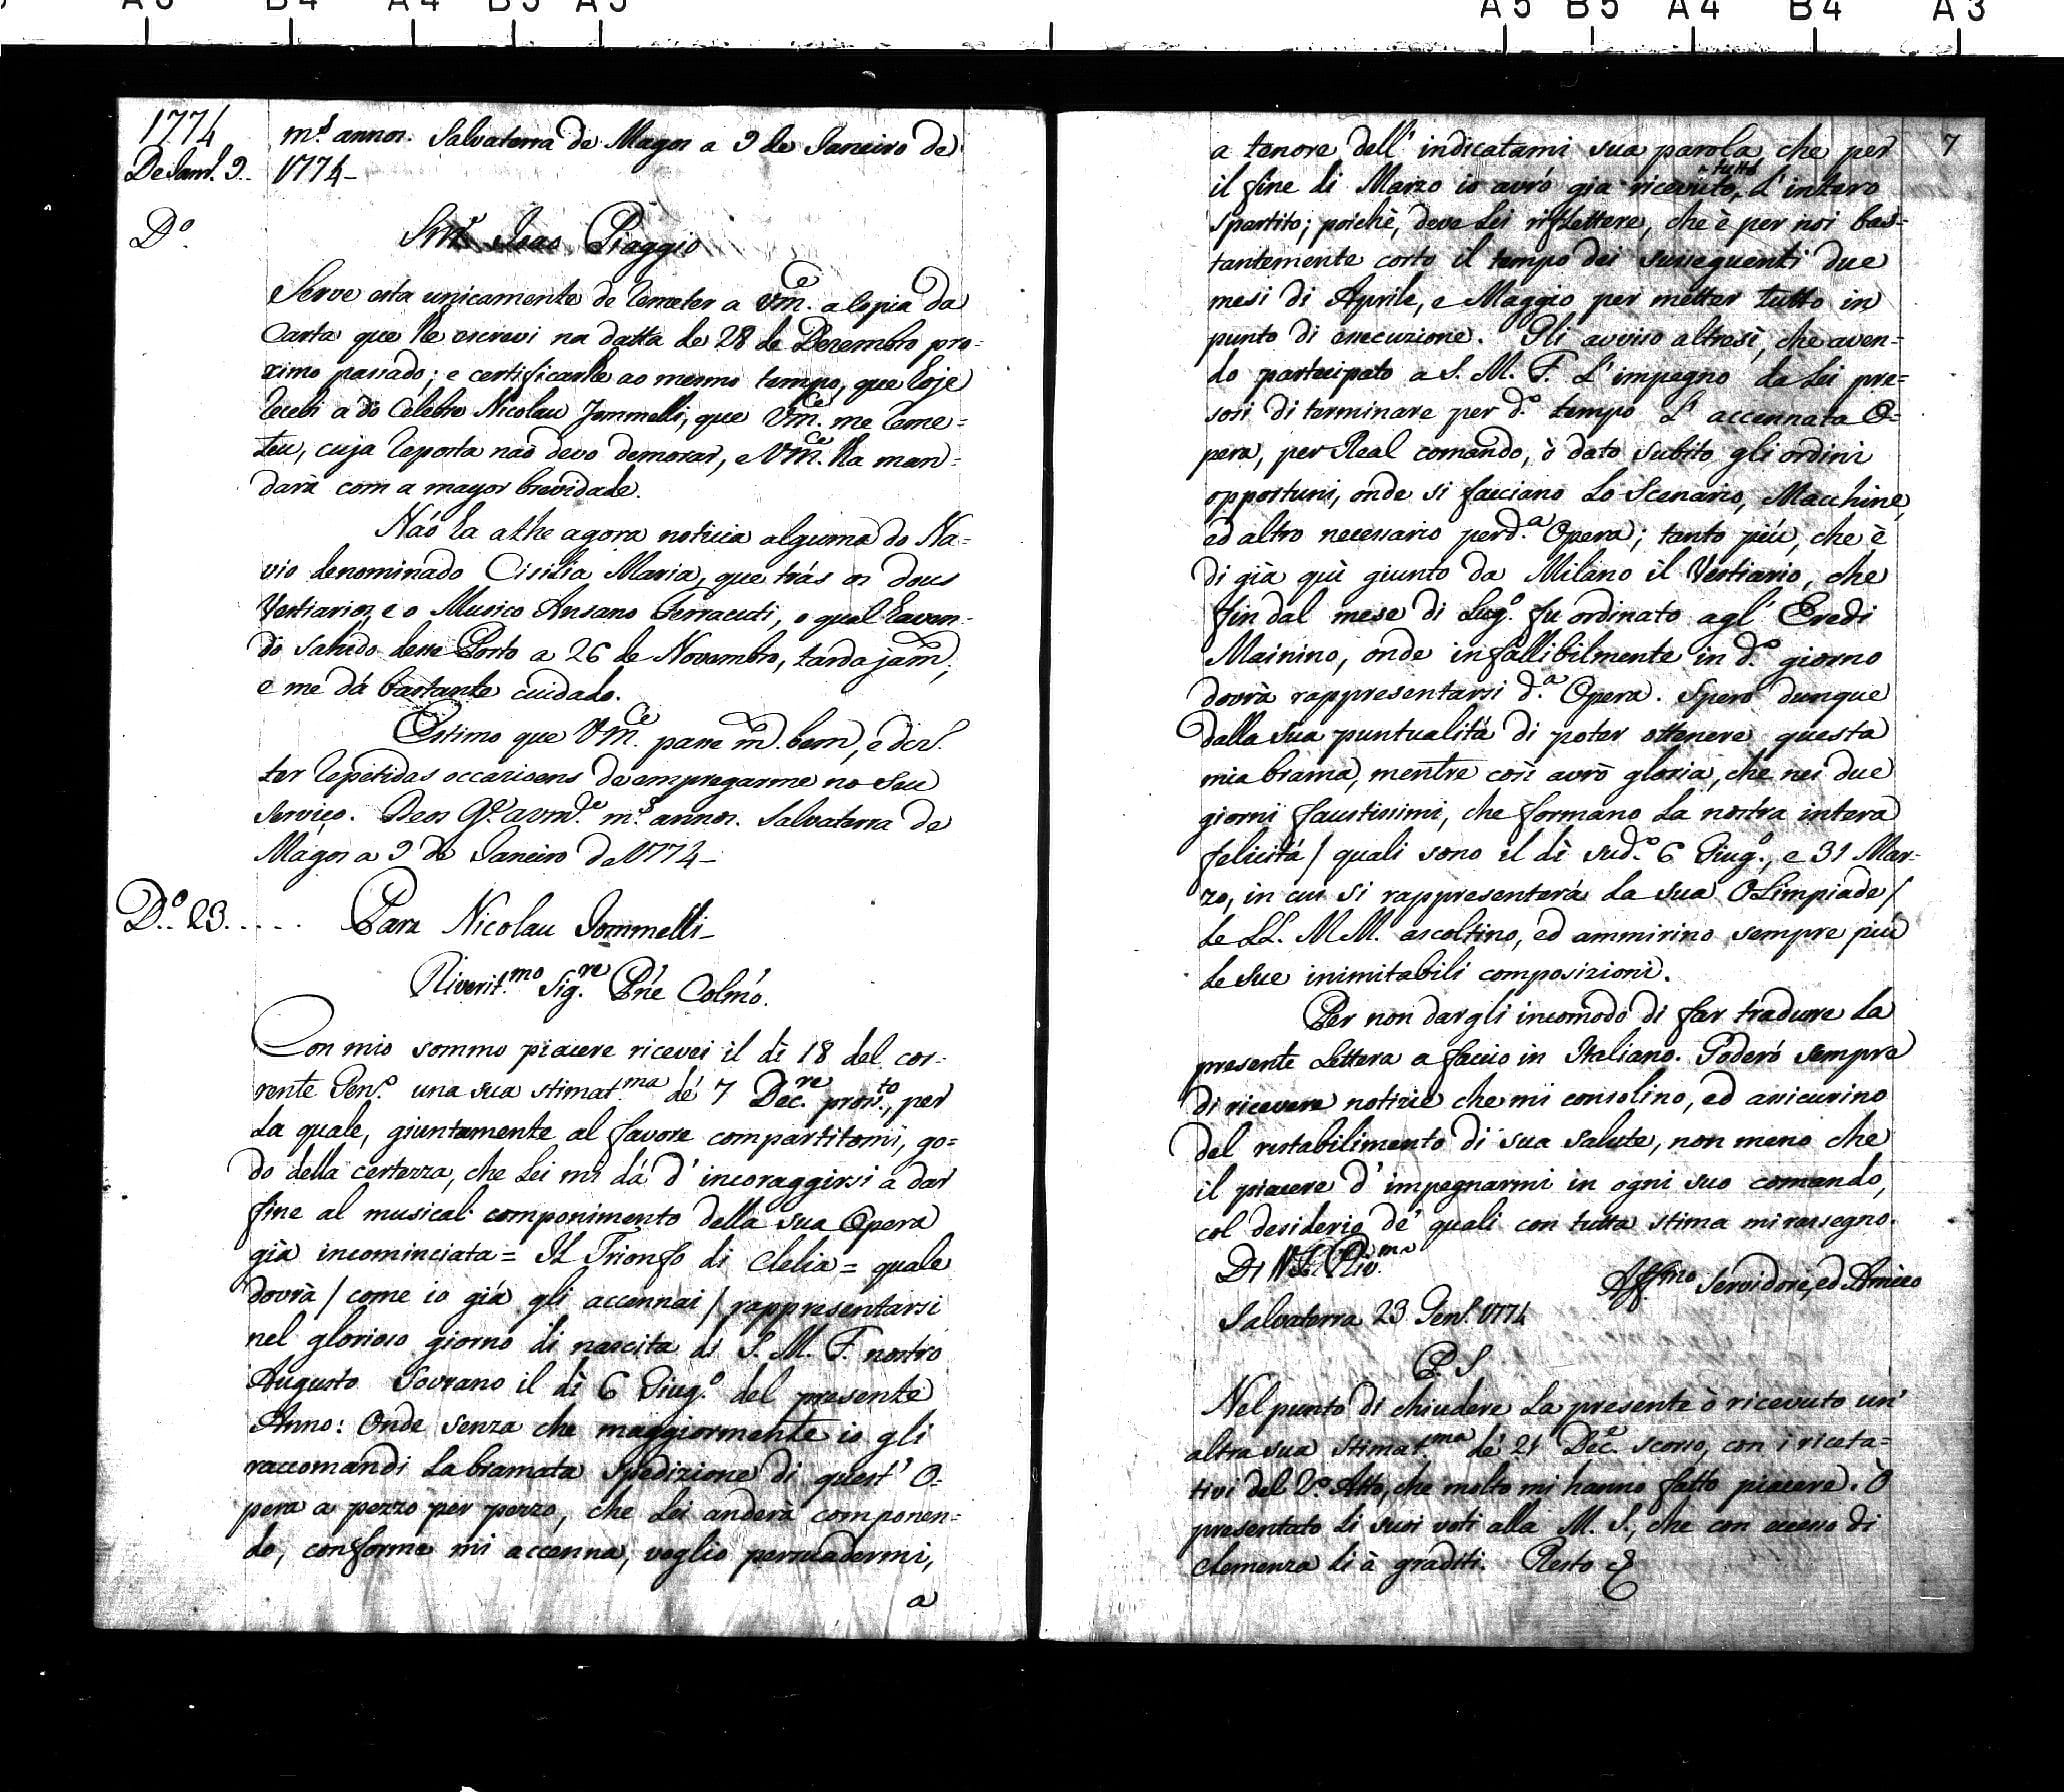 A3 B4 A4 B5 A5
A5 B5 A4 B4 A3
1774
De Janr.º 9.
m.s annos. Salvaterra de Magos a 9 de Janeiro de
1774_
Dº.
Snr. Joao Piaggio
Serve esta unicamente de remeter a Vm.ce a Copia da
Carta que lhe escrevi na datta de 28 de Dezembro pro=
ximo passado; e certificarlhe ao mesmo tempo, que hoje
recebi a do Celebre Nicolau Jommelli, que Vm.ce me reme=
teu, cuja reposta naõ devo demorar, e Vm.ce lha man=
dará com a mayor brevidade.
Náõ ha athe agora noticia alguma do Na=
vio denominado Cisilia Maria, que trás os dous
Vestiarios, e o Musico Ansano Ferracuti, o qual haven-
do sahido desse Porto a 26 de Novembro, tarda ja m.to;
e me dá bastante cuidado.
Estimo que Vm.ce passe m.to bem, e dez.º
ter repetidas occazioens de empregarme no seu
serviço. Deos G.e a vm.ce m.s annos. Salvaterra de
Magos a 9 de Janeiro de 1774_
Dº. 23. . . . .
Para Nicolau Jommelli_
Riverit.mo Sig.re Pñe Colmo.
Con mio sommo piacere ricevei il dì 18 del cor-
rente Gen.º una sua stimat.ma dé 7 Dec.re pross.to, per
la quale, giuntamente al favore compartitomi, go=
do della certezza, che Lei mi dá d'incoraggirsi a dar
fine al musical componimento della sua Opera
già incominciata = Il Trionfo di Clelia = quale
dovrà / come io già gli accennai / rappresentarsi
nel glorioso giorno di nascita di S. M. F. nostro
Augusto Sovrano il dì 6 Giug.º del presente
Anno: Onde senza che maggiormente io gli
raccomandi la bramata Spedizione di quest' O-
pera a pezzo per pezzo, che Lei anderà componen=
do, conforme mi accenna, voglio persuadermi,
a
7
a tenore dell' indicatami sua parola che per
il fine di Marzo io avró gia ricevuto, tutto L' intero
Spartito; poichè, deve Lei riflettere, che è per noi bas=
tantemente corto il tempo dei susseguenti due
mesi di Aprile, e Maggio per metter tutto in
punto di esecuzione. Gli avviso altresì, che aven=
do partecipato a S. M. F. L'impegno da Lei pre=
sosi di terminare per d.º tempo L' accennata O-
pera, per Real comando, ò dato subito gli ordini
opportuni, onde si facciano Lo Scenario, Macchine,
ed altro necessario per d.a Opera; tanto più, che è
di già quì giunto da Milano il Vestiario, che
fin dal mese di Lug.º fu ordinato agl' Eredi
Mainino, onde infallibilmente in d.º giorno
dovrà rappresentarsi d.a Opera. Spero dunque
dalla sua puntualitá di poter ottenere questa
mia brama, mentre così avrò gloria, che nei due
giorni faustissimi, che formano La nostra intera
felicitá / quali sono il dì sud.º 6 Giug.º, e 31 Mar-
zo, in cui si rappresenterá La sua OLimpiade /
Le LL. MM. ascoltino, ed ammirino sempre più
Le sue inimitabili composizioni.
Per non dargli incomodo di far tradurre La
presente Lettera a faccio in Italiano. Goderó sempre
di ricevere notizie che mi consolino, ed assicurino
del ristabilimento di sua salute, non meno che
il piacere d' impegnarmi in ogni suo comando,
col desiderio de' quali con tutta stima mi rassegno.
Di V. S. Riv.ma
Affmo Servidore, ed Amico
Salvaterra 23 Gen.º 1774
P. S.
Nel punto di chiudere La presente ò ricevuto un'
altra sua stimat.ma dé 21 Dec.e scorso, con i riceta=
tivi del 2.º Atto, che molto mi hanno fatto piacere. Ò
presentato Li suoi voti alla M. S., che con eccesso di
clemenza li à graditi. Resto &